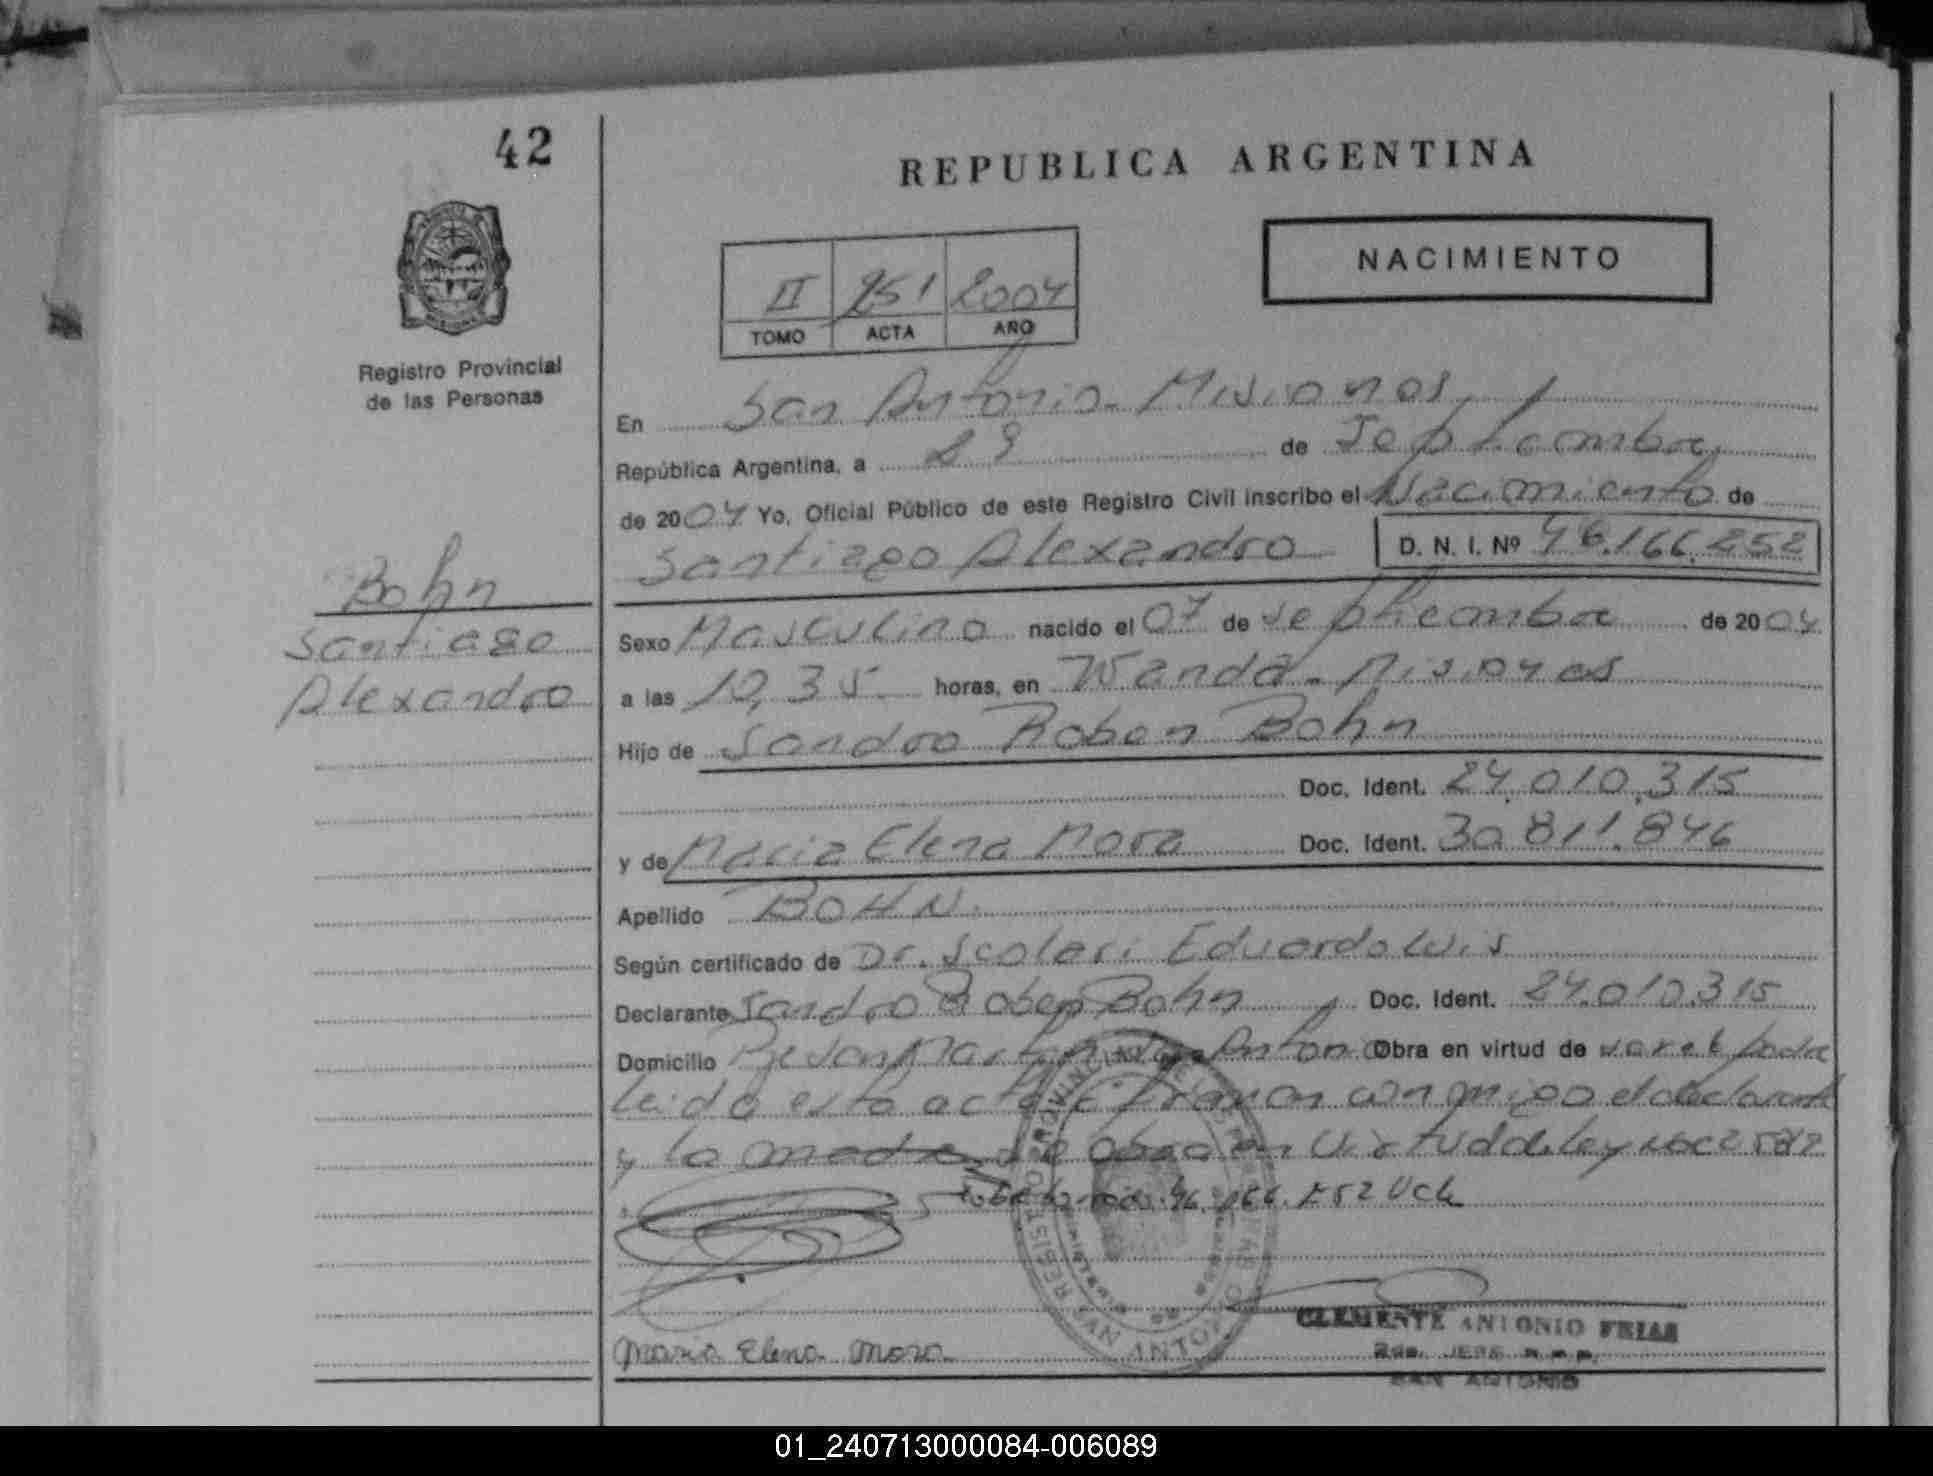 42
REPUBLICA ARGENTINA
NACIMIENTO
II 251 2004
TOMO ACTA AÑO
Registro Provincial
de las Personas
En San Antonio - Misiones
República Argentina, a 29 de Septiembre
de 2004 Yo, Oficial Público de este Registro Civil inscribo el Nacimiento de
Santiago Alexandro D. N. I. Nº 46.166.252
Bohn
Santiago
Alexandro
Sexo Masculino nacido el 07 de septiembre de 2004
a las 10,35 horas, en Wanda - Misiones
Hijo de Sandro Roben Bohn
Doc. Ident. 24.010.315
y de Maria Elena Mora Doc. Ident. 30.811.846
Apellido BOHN
Según certificado de Dr. Scolari Eduardo Luis
Declarante Sandro Roben Bohn Doc. Ident. 24.010.315
Domicilio San Antonio Obra en virtud de ser el padre
Leida esta acta firman conmigo el declarante
y la madre se obra en Virtud de ley
46.166.252
Maria Elena Mora
CLEMENTE ANTONIO FRIAS
SAN ANTONIO
01_240713000084-006089